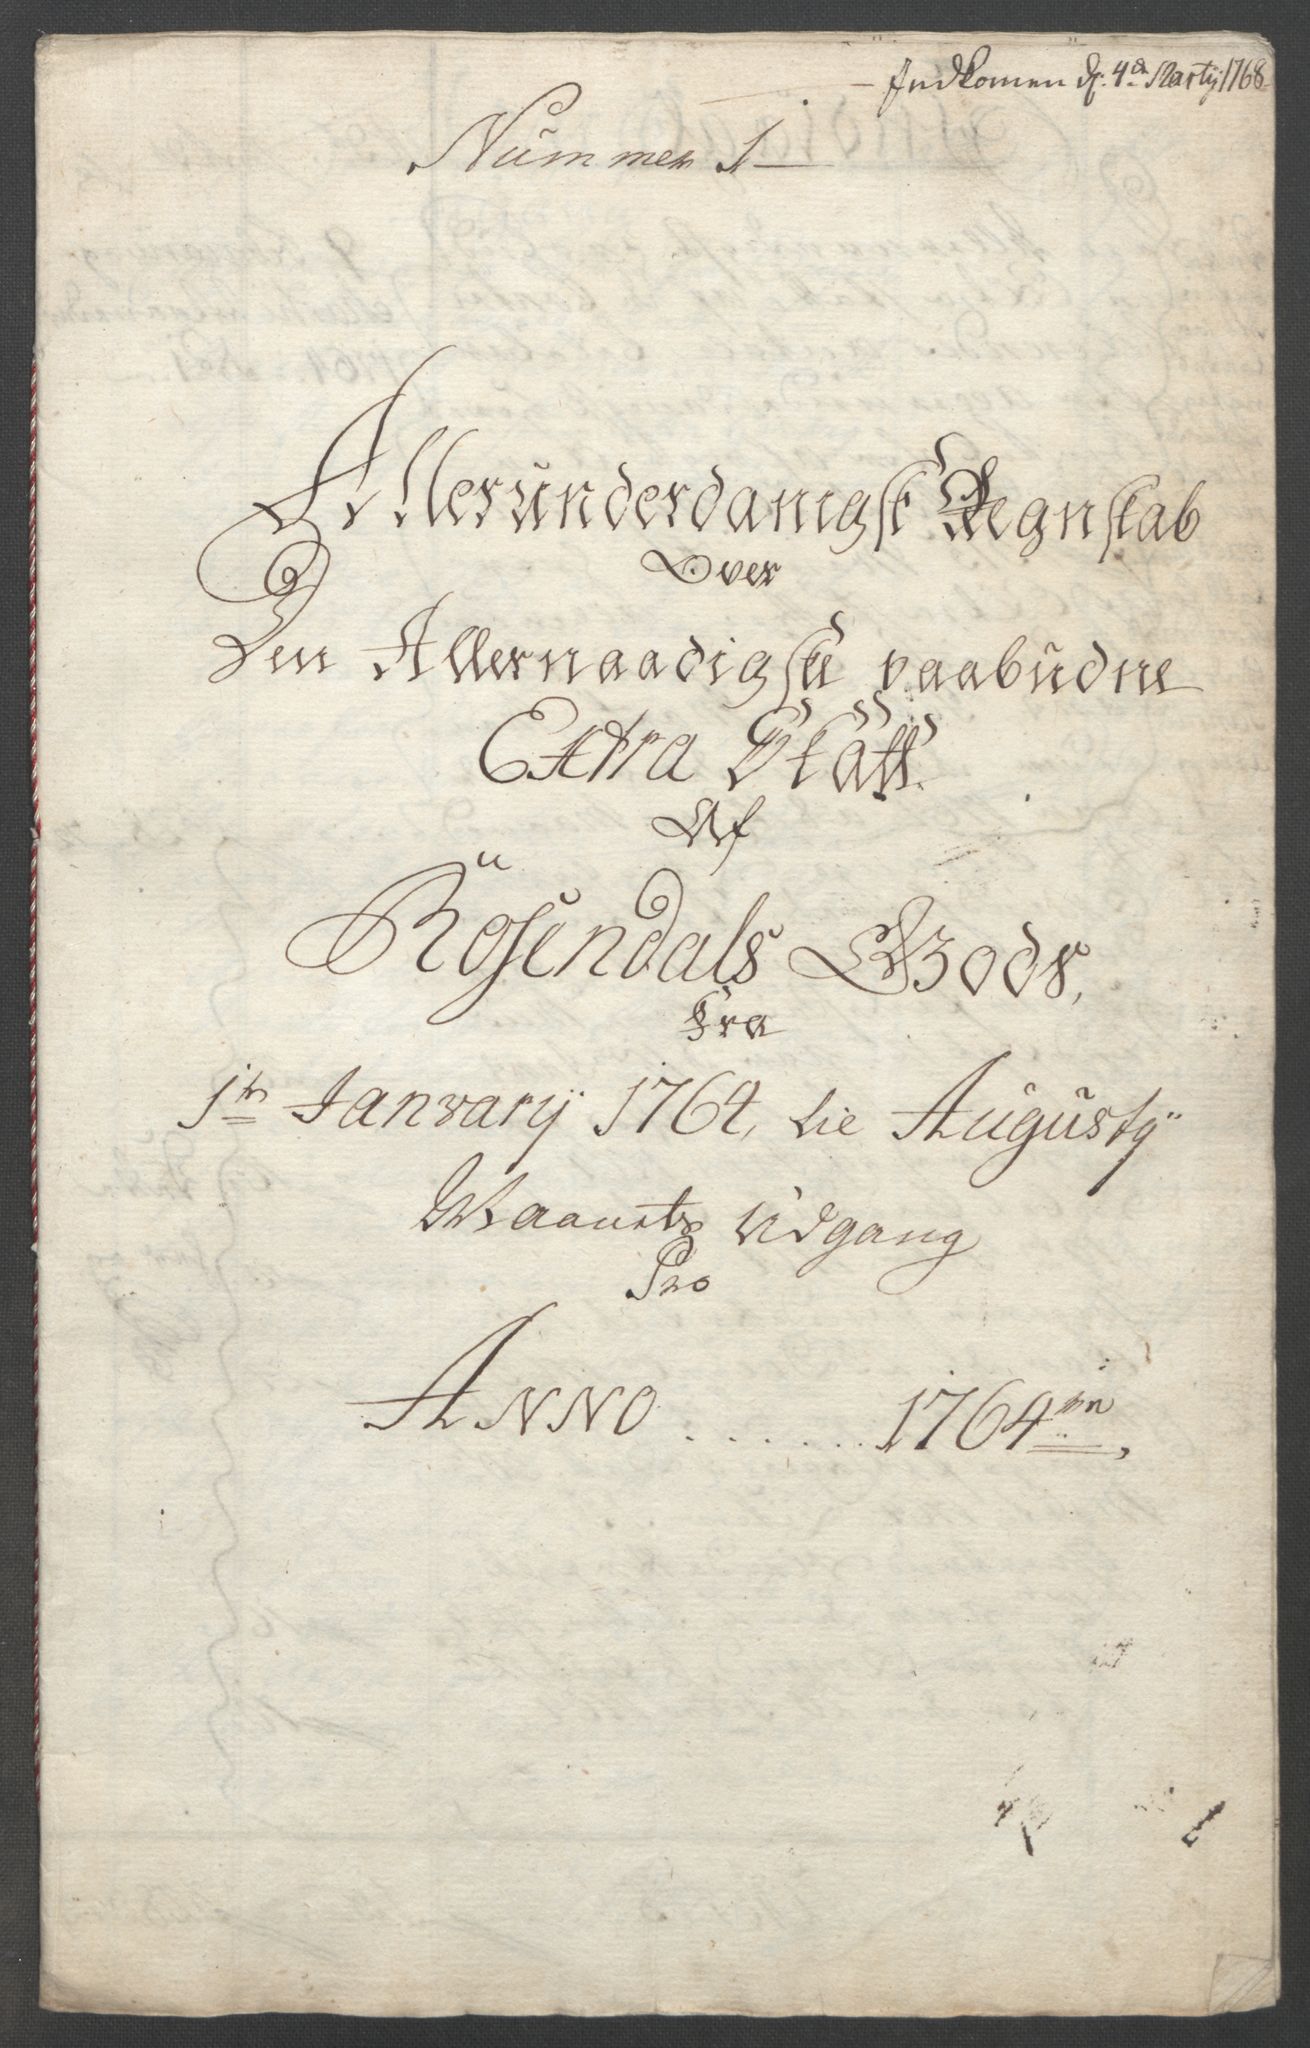 Indkomen d. 4de Martij 1768
Nummer 1
Alleründerdanigst Regnskab
Over
Den Allernaadigste paabüdne
Extra Skatt
Af
Rosendals Gods,
Fra
1te Janvary 1764, til Augusty
Maanets Udgang
Pro
ANNO ...... 1764